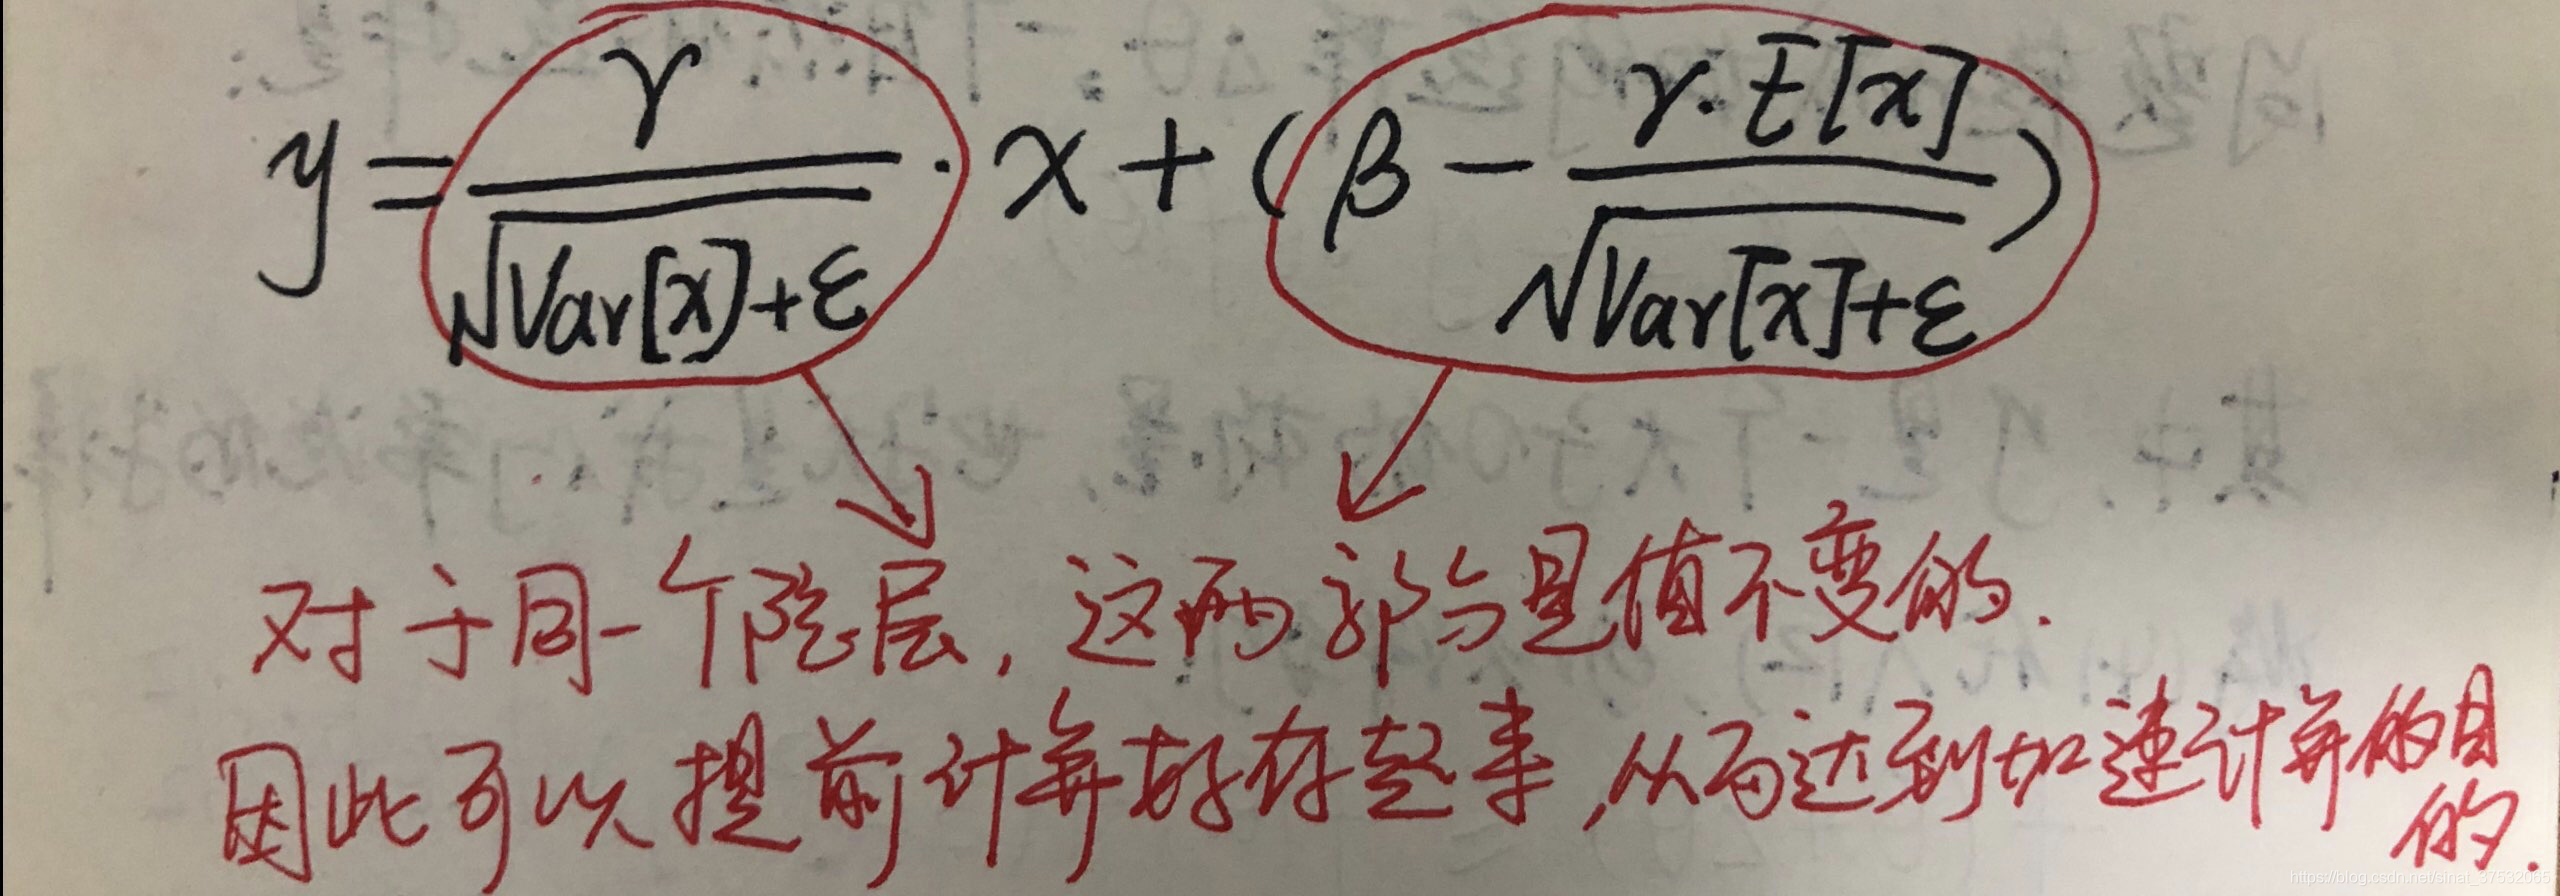 y = γ / √(Var[x]+ε) · x + (β − γ·E[x] / √(Var[x]+ε))
对于同一个隐层, 这两部分是值不变的.
因此可以提前计算好存起来, 从而达到加速计算的目
的.
https://blog.csdn.net/sinat_37532065